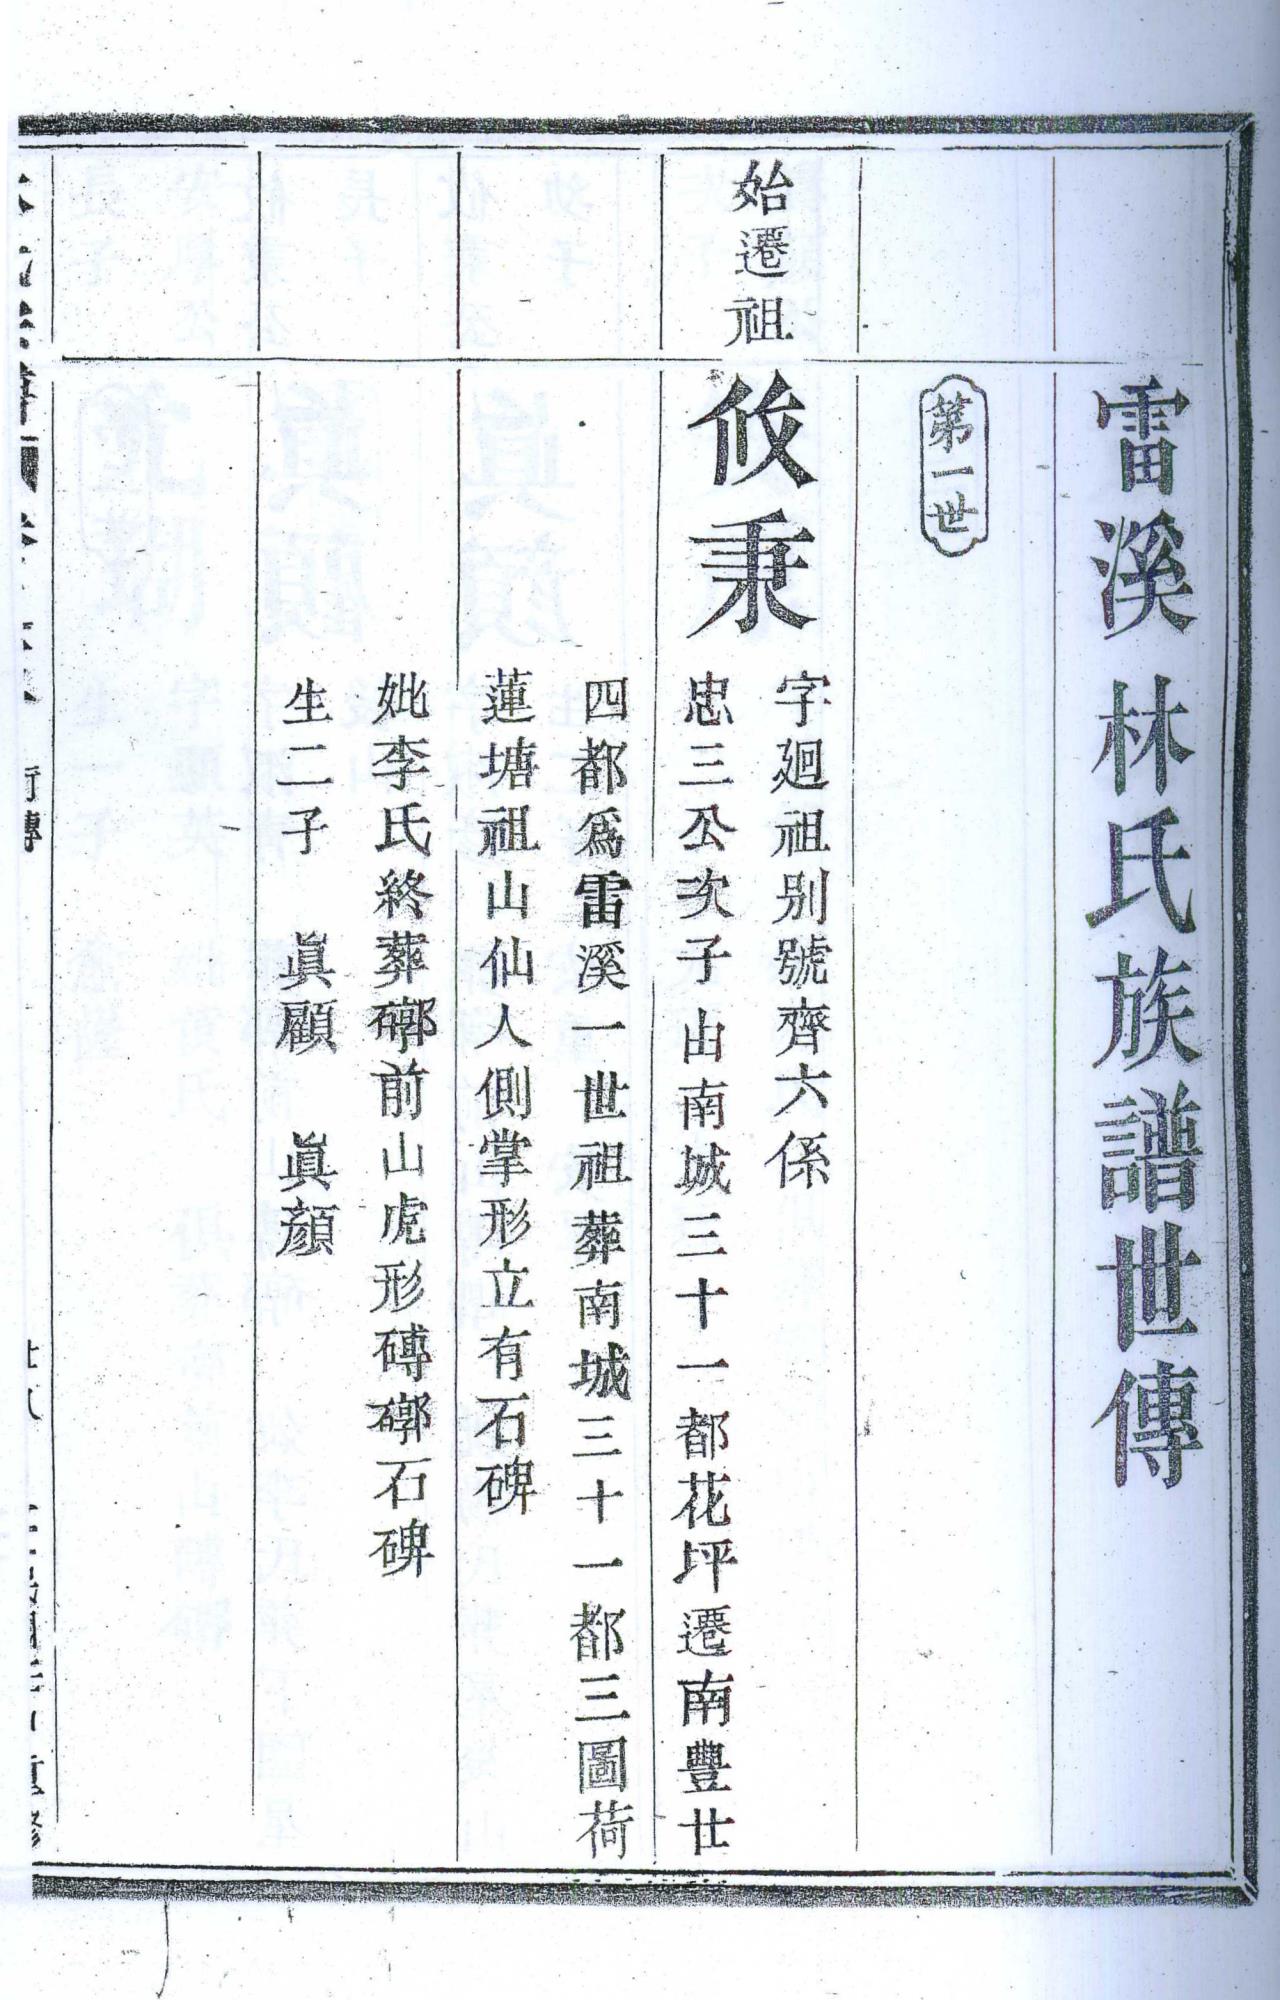 雷溪林氏族譜世傳
第一世
始遷祖
攸秉
字廻祖别號齊六係
忠三公次子由南城三十一都花坪遷南豐廿
四都爲雷溪一世祖葬南城三十一都三圖荷
蓮塘祖山仙人側掌形立有石碑
妣李氏終葬㙟前山虎形磚㙟石碑
生二子 眞顧 眞顏